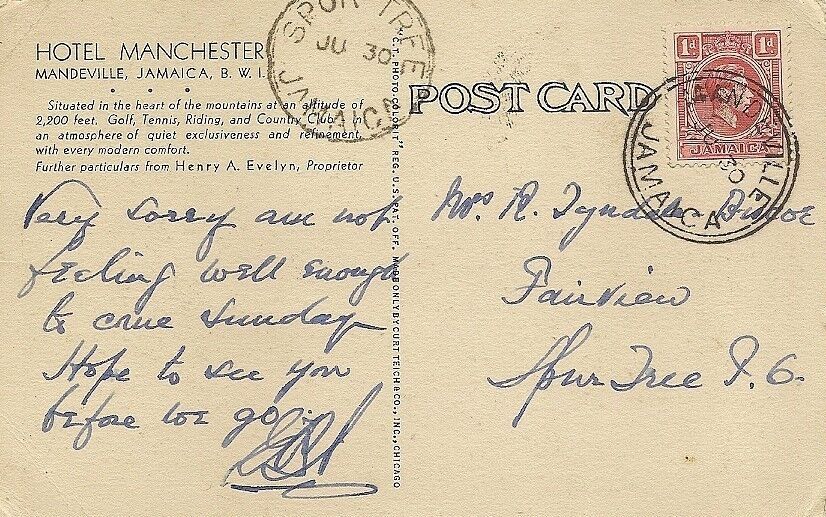 HOTEL MANCHESTER
MANDEVILLE, JAMAICA, B. W. I.
Situated in the heart of the mountains at an altitude of
2,200 feet. Golf, Tennis, Riding, and Country Club in
an atmosphere of quiet exclusiveness and refinement,
with every modern comfort.
Further particulars from Henry A. Evelyn, Proprietor
SPUR TREE
JU 30
JAMAICA
"C.T. PHOTO-COLORIT" REG. U.S. PAT. OFF. MADE ONLY BY CURT TEICH & CO., INC., CHICAGO
POST CARD
1d 1d
JAMAICA
MANDEVILLE
30
JAMAICA
Very sorry am not
feeling well enough
to come Sunday
Hope to see you
before we go.
Mrs R. Tyndale Biscoe
Fairview
Spur Tree P.O.